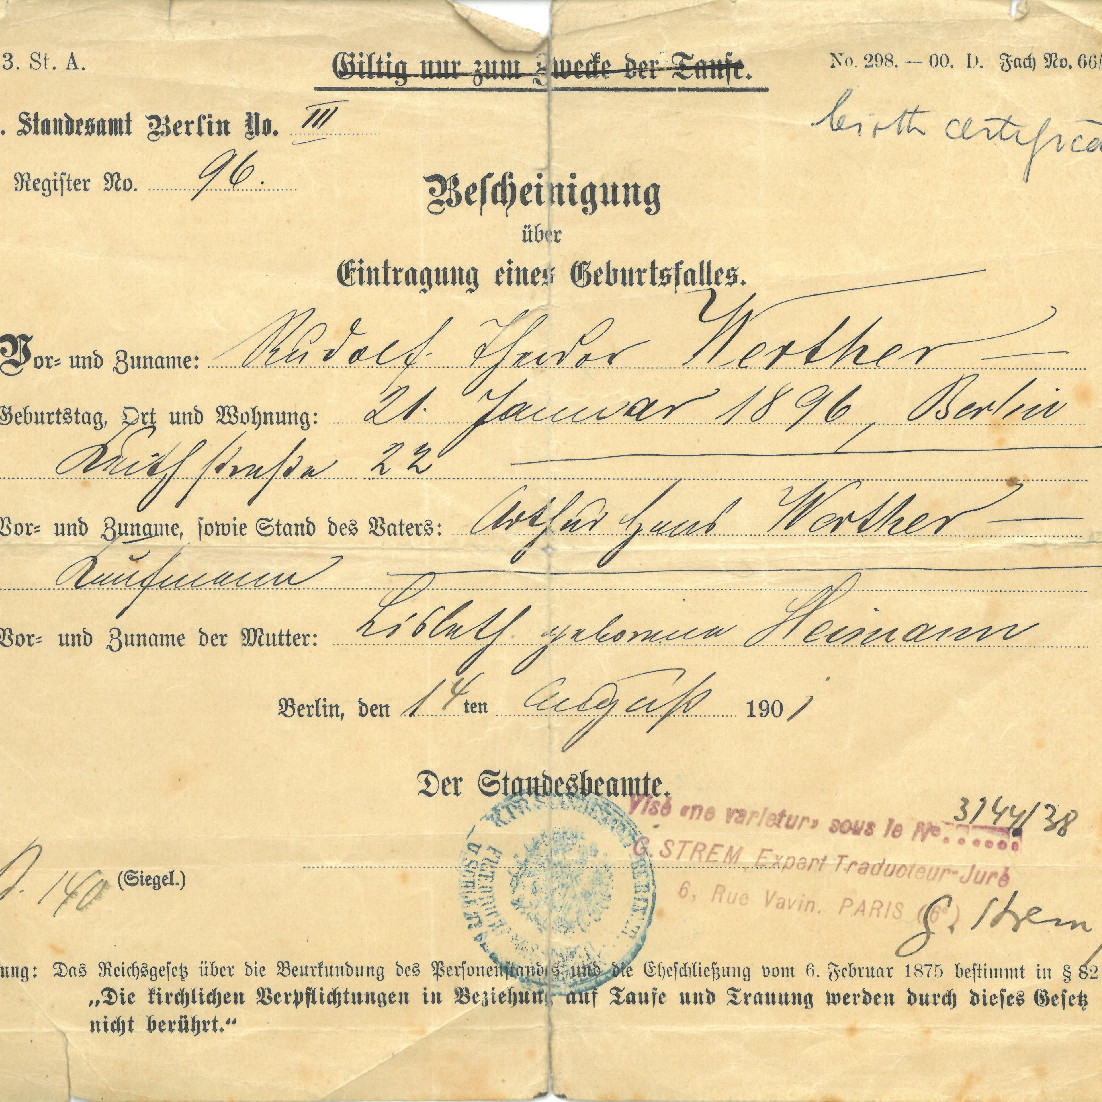 3. St. A.
Giltig nur zum Zwecke der Taufe.
No. 298. — 00. D. Fach No. 66/
birth certifica
. Standesamt Berlin No. III
Register No. 96.
Bescheinigung
über
Eintragung eines Geburtsfalles.
Vor- und Zuname: Rudolf Theodor Werther —
Geburtstag, Ort und Wohnung: 21. Januar 1896, Berlin
straße 22
Vor- und Zuname, sowie Stand des Vaters: Arthur Hans Werther —
Kaufmann
Vor- und Zuname der Mutter: Lisbeth geborene Heimann
Berlin, den 14ten August 1901
Der Standesbeamte.
Visé «ne varietur» sous le No. 3144/38
G. STREM, Expert Traducteur-Juré
6, Rue Vavin. PARIS (6e)
G. Strem
140 (Siegel.)
ung: Das Reichsgesetz über die Beurkundung des Personenstandes und die Eheschließung vom 6. Februar 1875 bestimmt in § 82
„Die kirchlichen Verpflichtungen in Beziehung auf Taufe und Trauung werden durch dieses Gesetz
nicht berührt.“